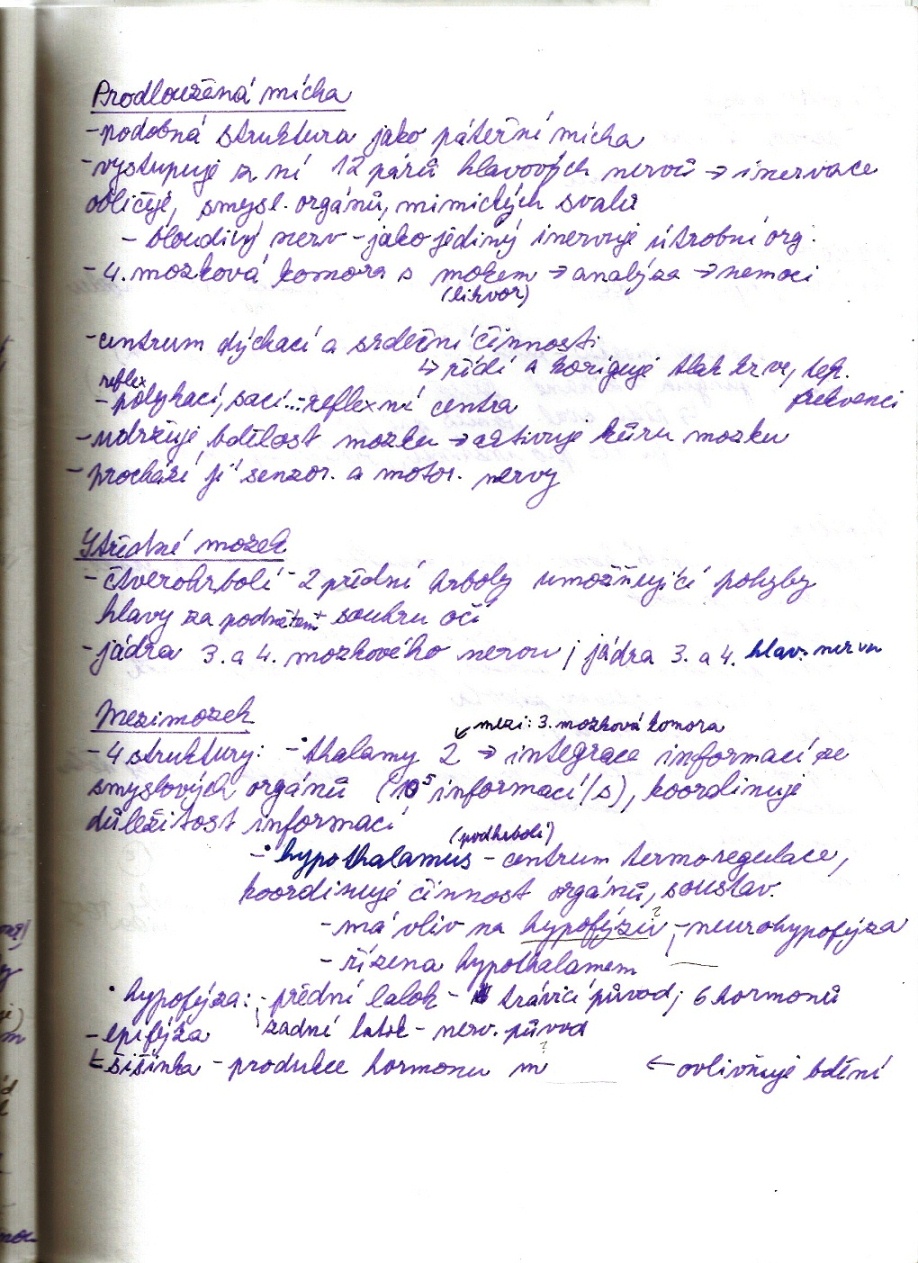 Prodloužená mícha
- podobná struktura jako páteřní mícha
- vystupuje z ní 12 párů hlavových nervů → inervace
obličeje, smysl. orgánů, mimických svalů
- bloudivý nerv - jako jediný inervuje útrobní org.
- 4. mozková komora s mokem → analýza → nemoci
(likvor)
- centrum dýchací a srdeční činnosti
↳ řídí a koriguje tlak krve, tep.
frekvenci
reflex
- polykací, sací... reflexní centra
- udržuje bdělost mozku → aktivuje kůru mozku
- prochází jí senzor. a motor. nervy
Střední mozek
- čtverohrbolí - 2 přední hrboly umožňující pohyby
hlavy za podnětem + souhru očí
- jádra 3. a 4. mozkového nervu ; jádra 3. a 4. hlav. nervu
Mezimozek
↙ mezi: 3. mozková komora
- 4 struktury: - • thalamy 2 → integrace informací ze
smyslových orgánů (10⁵ informací/s), koordinuje
důležitost informací
(podhrbolí)
- • hypothalamus - centrum termoregulace,
koordinuje činnost orgánů, soustav.
- má vliv na hypofýzu ? ; - neurohypofýza
- řízena hypothalamem
• hypofýza: - přední lalok - trávicí původ; 6 hormonů
- epifýza ; zadní lalok - nerv. původ
↳ šišinka - produkce hormonu m ? ← ovlivňuje bdění